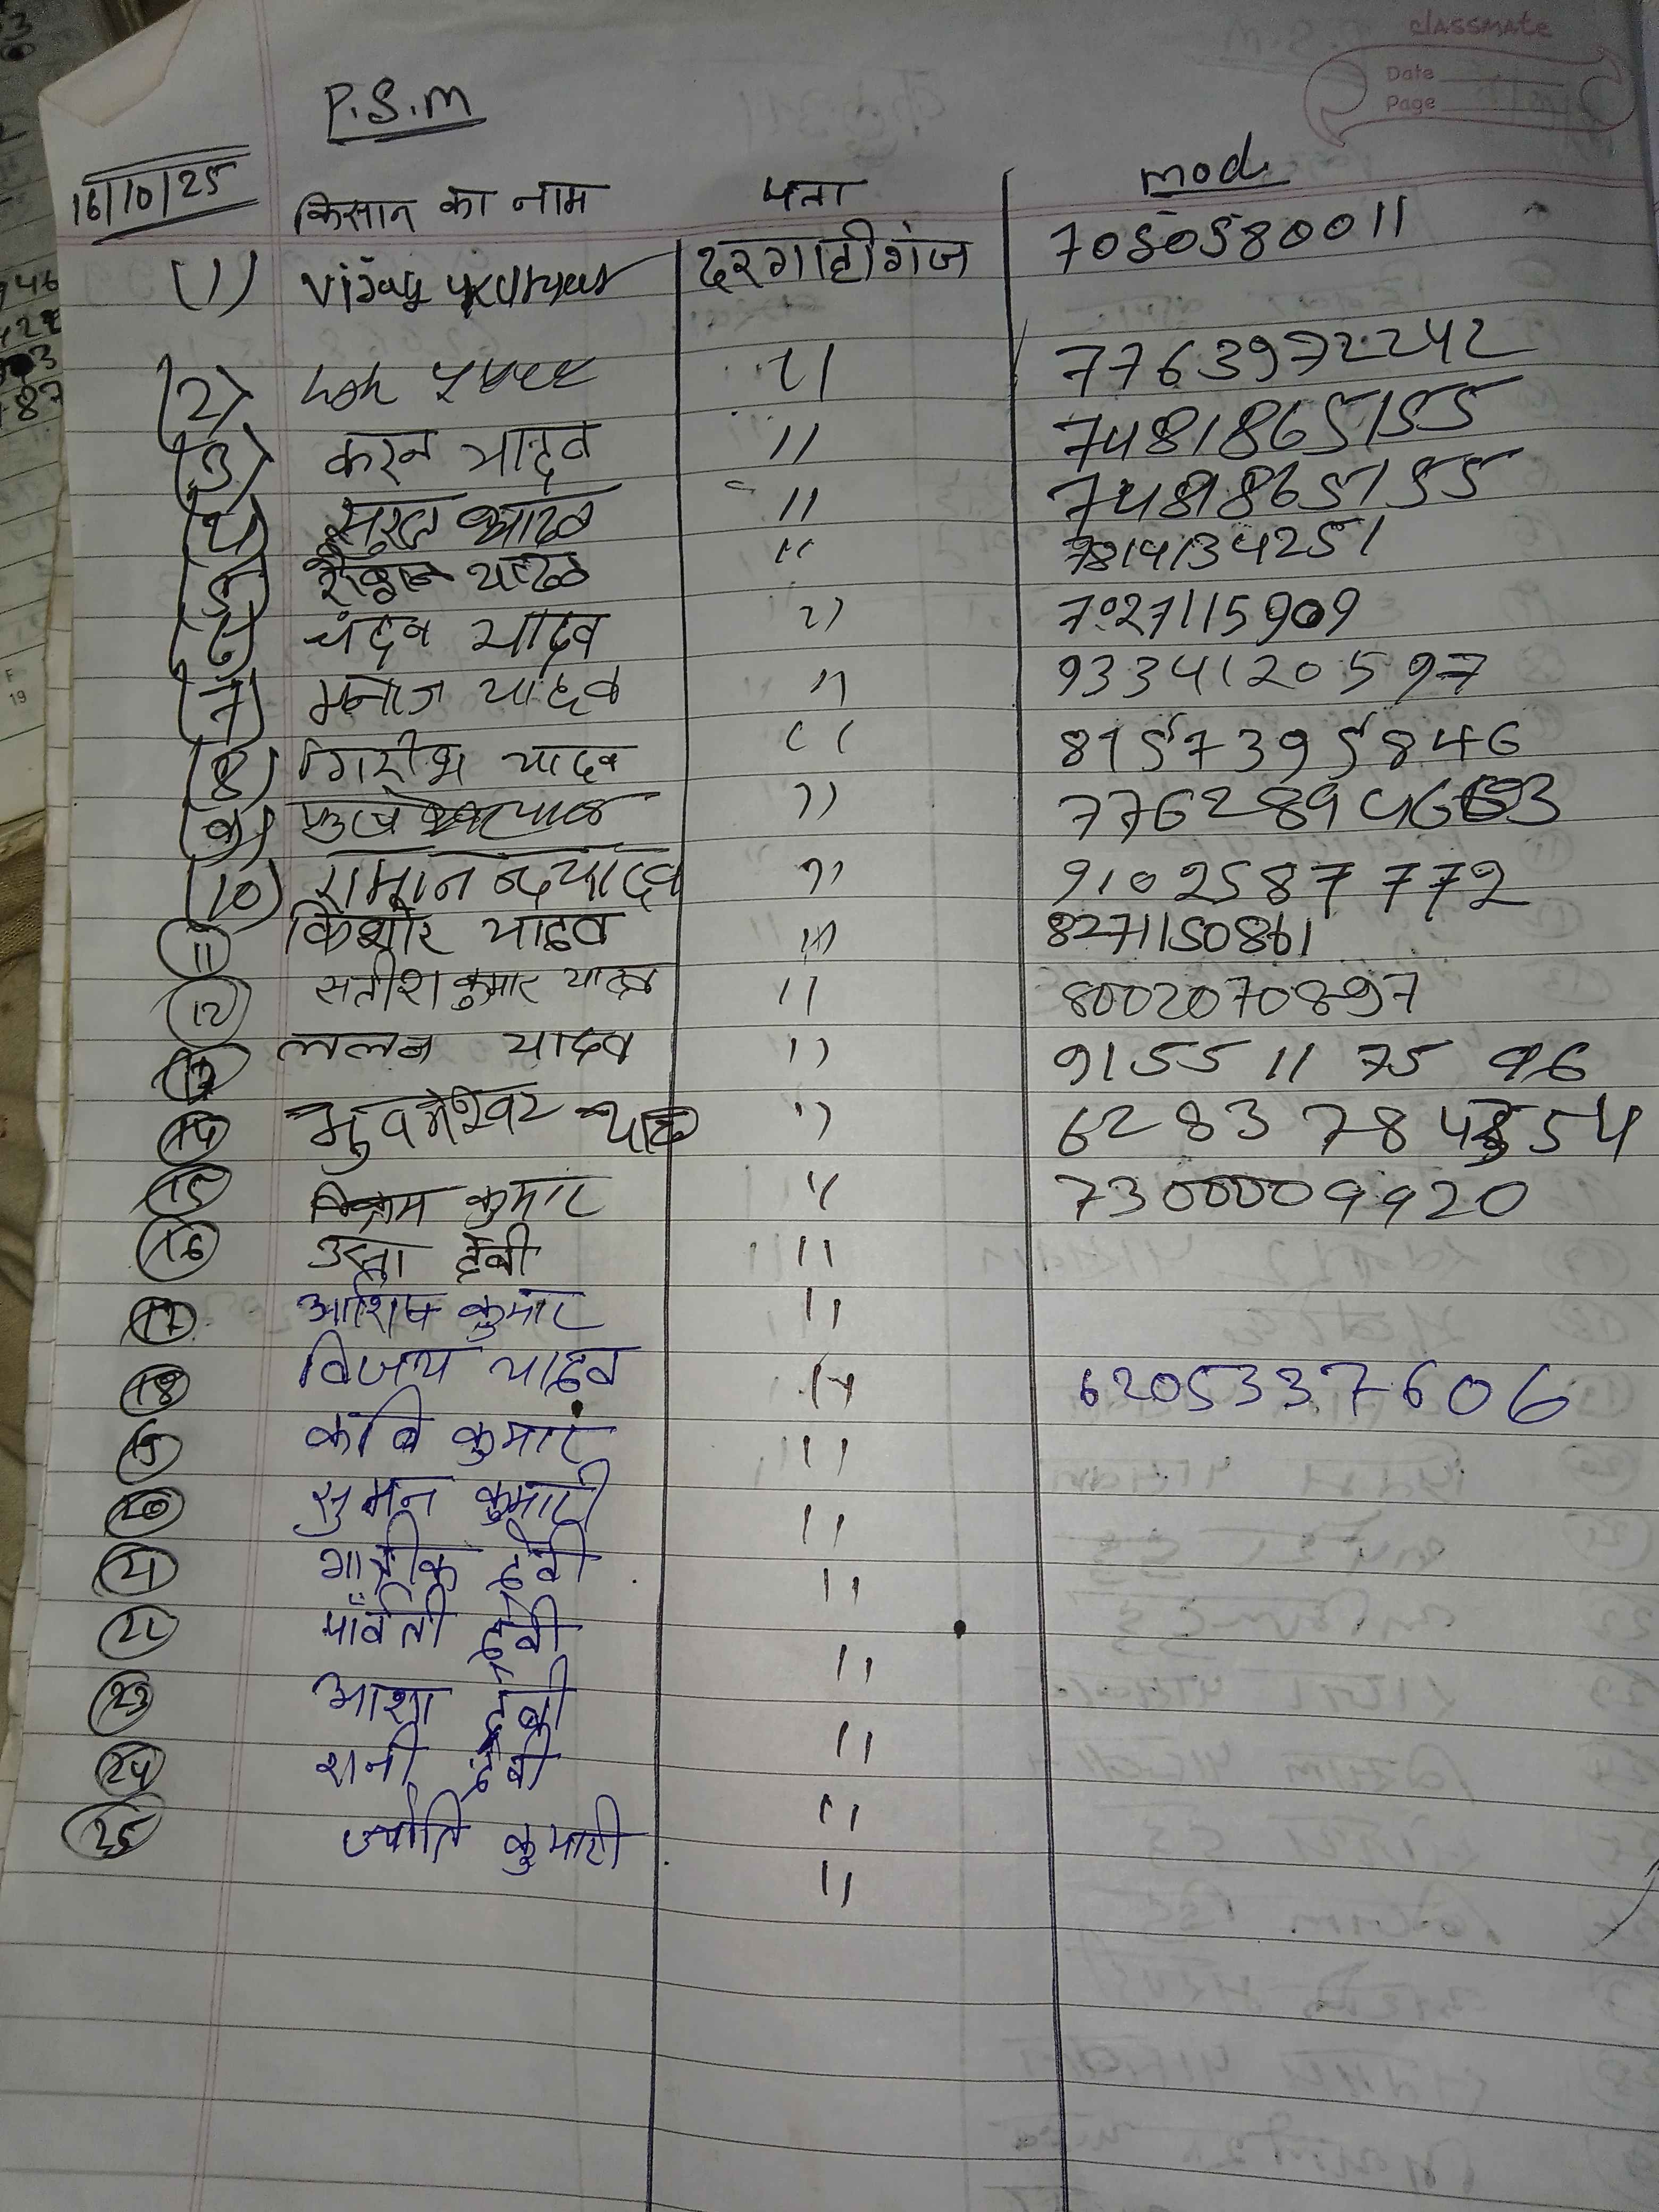 classmate
Date
Page
P.S.M
16/10/25 किसान का नाम पता mod
(1) Vijay दरगाहीगंज 7050580011
(2) 11 7763972242
(3) करन यादव 11 7481865155
(4) 11 7481865155
(5) यादव 11 7814134251
(6) चंदन यादव 11 7027115909
(7) मनोज यादव 11 9334120597
(8) गिरीश यादव 11 8157395846
(9) 11
(10) रामानन्द यादव 11 9102587772
11 किशोर यादव 11 8271150861
12 सतीश कुमार यादव 11 8002070897
13 ललन यादव 11 9155 11 75 96
14 भुवनेश्वर यादव 11
15 विक्रम कुमार 11 7300009920
16 देवी 11
17 आशिष कुमार 11
18 विजय यादव 11 6205337606
19 कवि कुमार 11
20 सुमन कुमारी 11
21 देवी 11
22 पार्वती देवी 11
23 आशा देवी 11
24 रानी देवी 11
25 ज्योति कुमारी 11